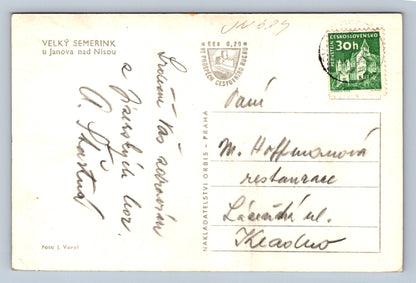 VELKÝ SEMERINK
u Janova nad Nisou
Kčs 0,20
VE PROSPĚCH CESTOVNÍHO RUCHU
ČESKOSLOVENSKO
30h
PERNŠTEJN
Srdečně Vás zdravím
z Jizerských hor.
A. Šťastná
NAKLADATELSTVÍ ORBIS - PRAHA
Paní
M. Hoffmanová
restaurace
ul.
Kladno
Foto J. Vorel